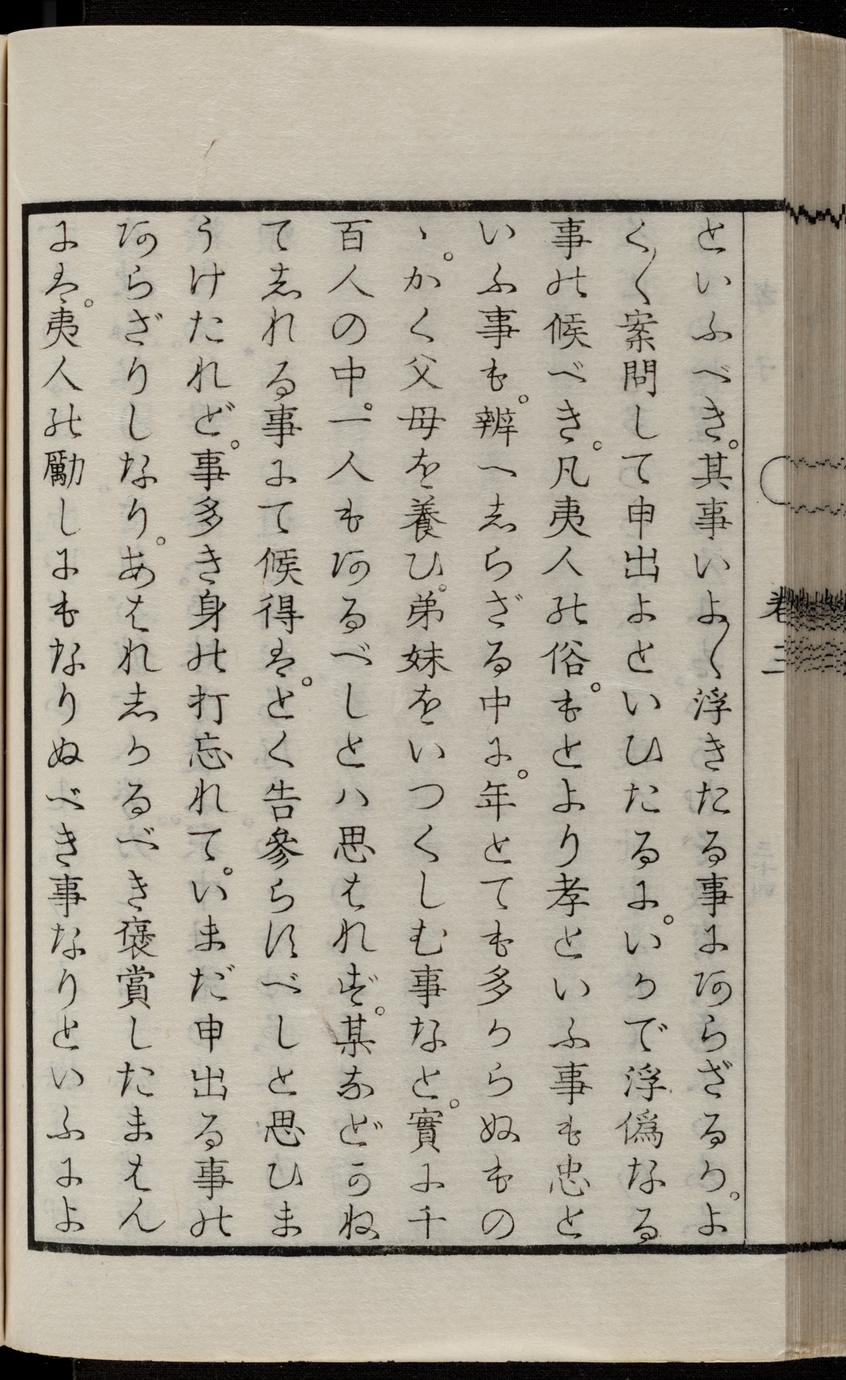 といふべき。其事いよ〱浮きたる事にあらざるか。よ
く〱案問して申出よといひたるに。いかで浮僞なる
事の候べき。凡夷人の俗。もとより孝といふ事も忠と
いふ事も。辨へしらざる中に。年とても多からぬもの
ゝ。かく父母を養ひ。弟妹をいつくしむ事なと。實に千
百人の中。一人もあるべしとハ思はれず。某などかね
てしれる事にて候得は。とく告參らすべしと思ひま
うけたれど。事多き身の打忘れて。いまだ申出る事の
あらざりしなり。あはれしかるべき褒賞したまはん
には。夷人の勵しにもなりぬべき事なりといふによ
卷三